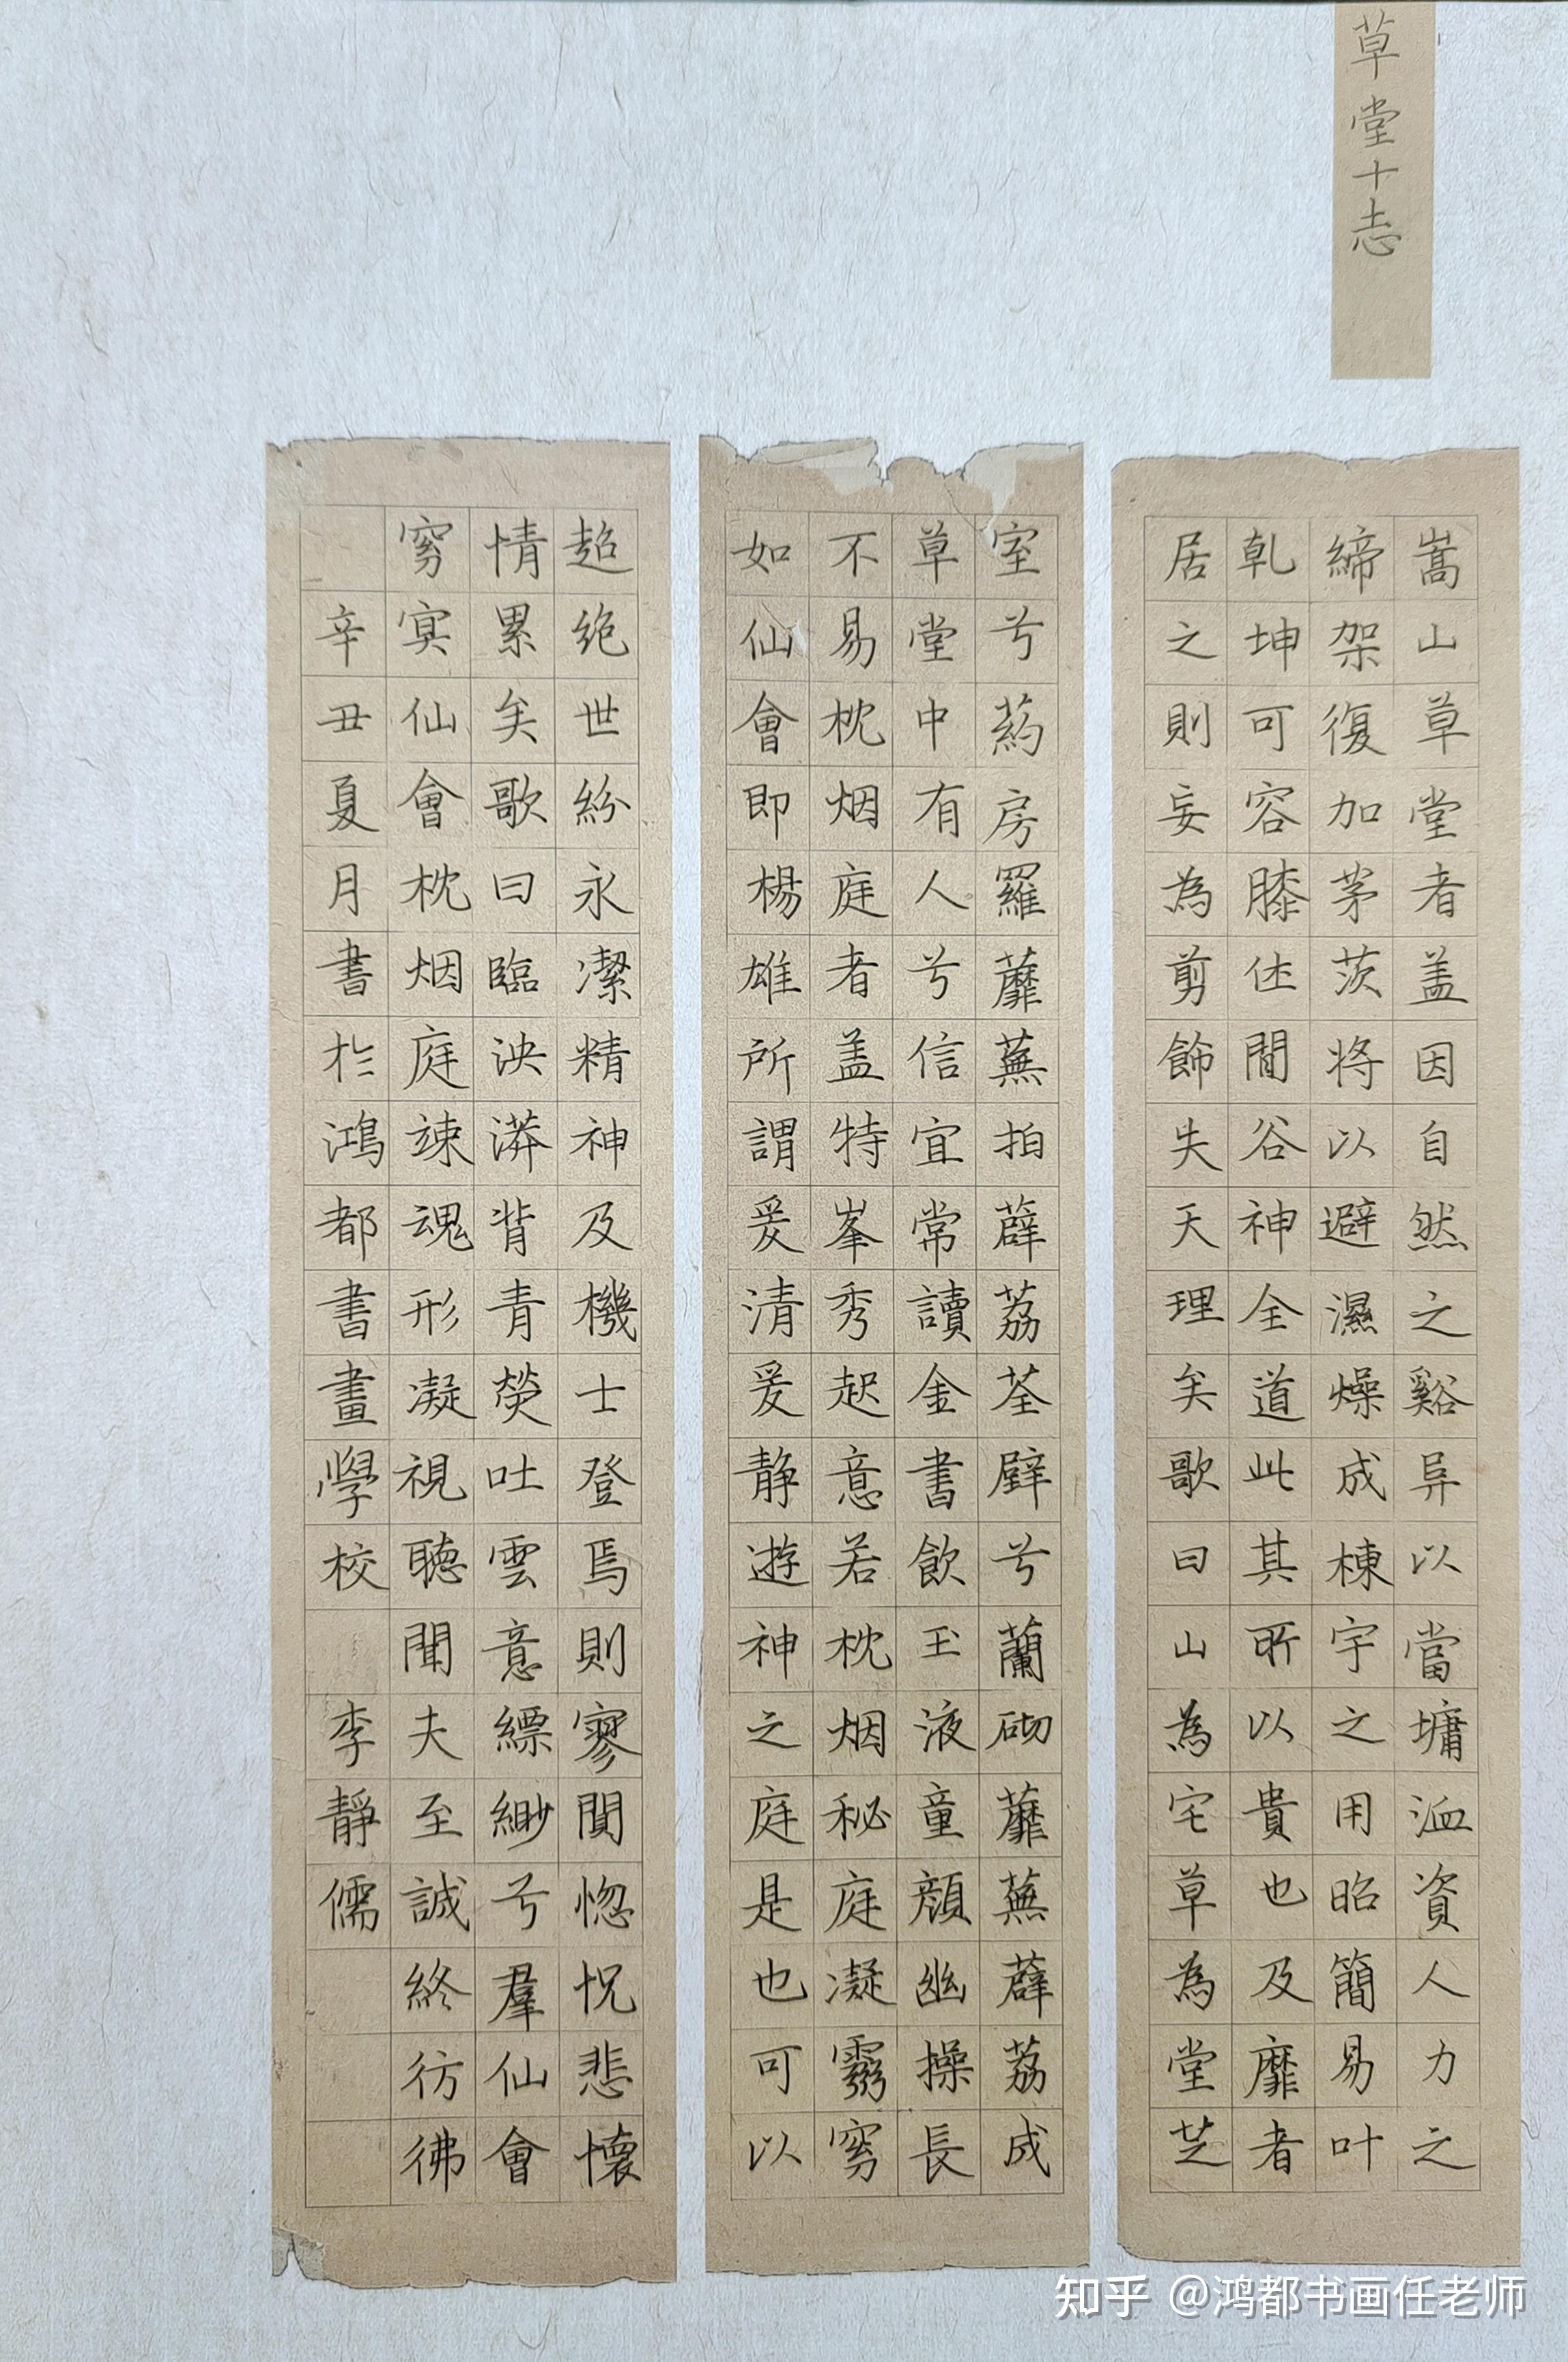 草堂十志
嵩山草堂者盖因自然之谿异以當墉洫資人力之
締架復加茅茨将以避濕燥成棟宇之用昭簡易叶
乹坤可容膝休閒谷神全道此其所以貴也及靡者
居之則妄為剪飾失天理矣歌曰山為宅草為堂芝
室兮葯房羅蘼蕪拍薜荔荃壁兮蘭砌蘼蕪薜荔成
草堂中有人兮信宜常讀金書飲玉液童顔幽操長
不易枕烟庭者盖特峯秀起意若枕烟秘庭凝霛窅
如仙會即楊雄所謂爰清爰静遊神之庭是也可以
超绝世紛永潔精神及機士登焉則寥闃惚怳悲懷
情累矣歌曰臨泱漭背青熒吐雲意縹緲兮羣仙會
窅冥仙會枕烟庭竦魂形凝視聽聞夫至誠終彷彿
辛丑夏月書於鴻都書畫學校 李靜儒
知乎 @鸿都书画任老师